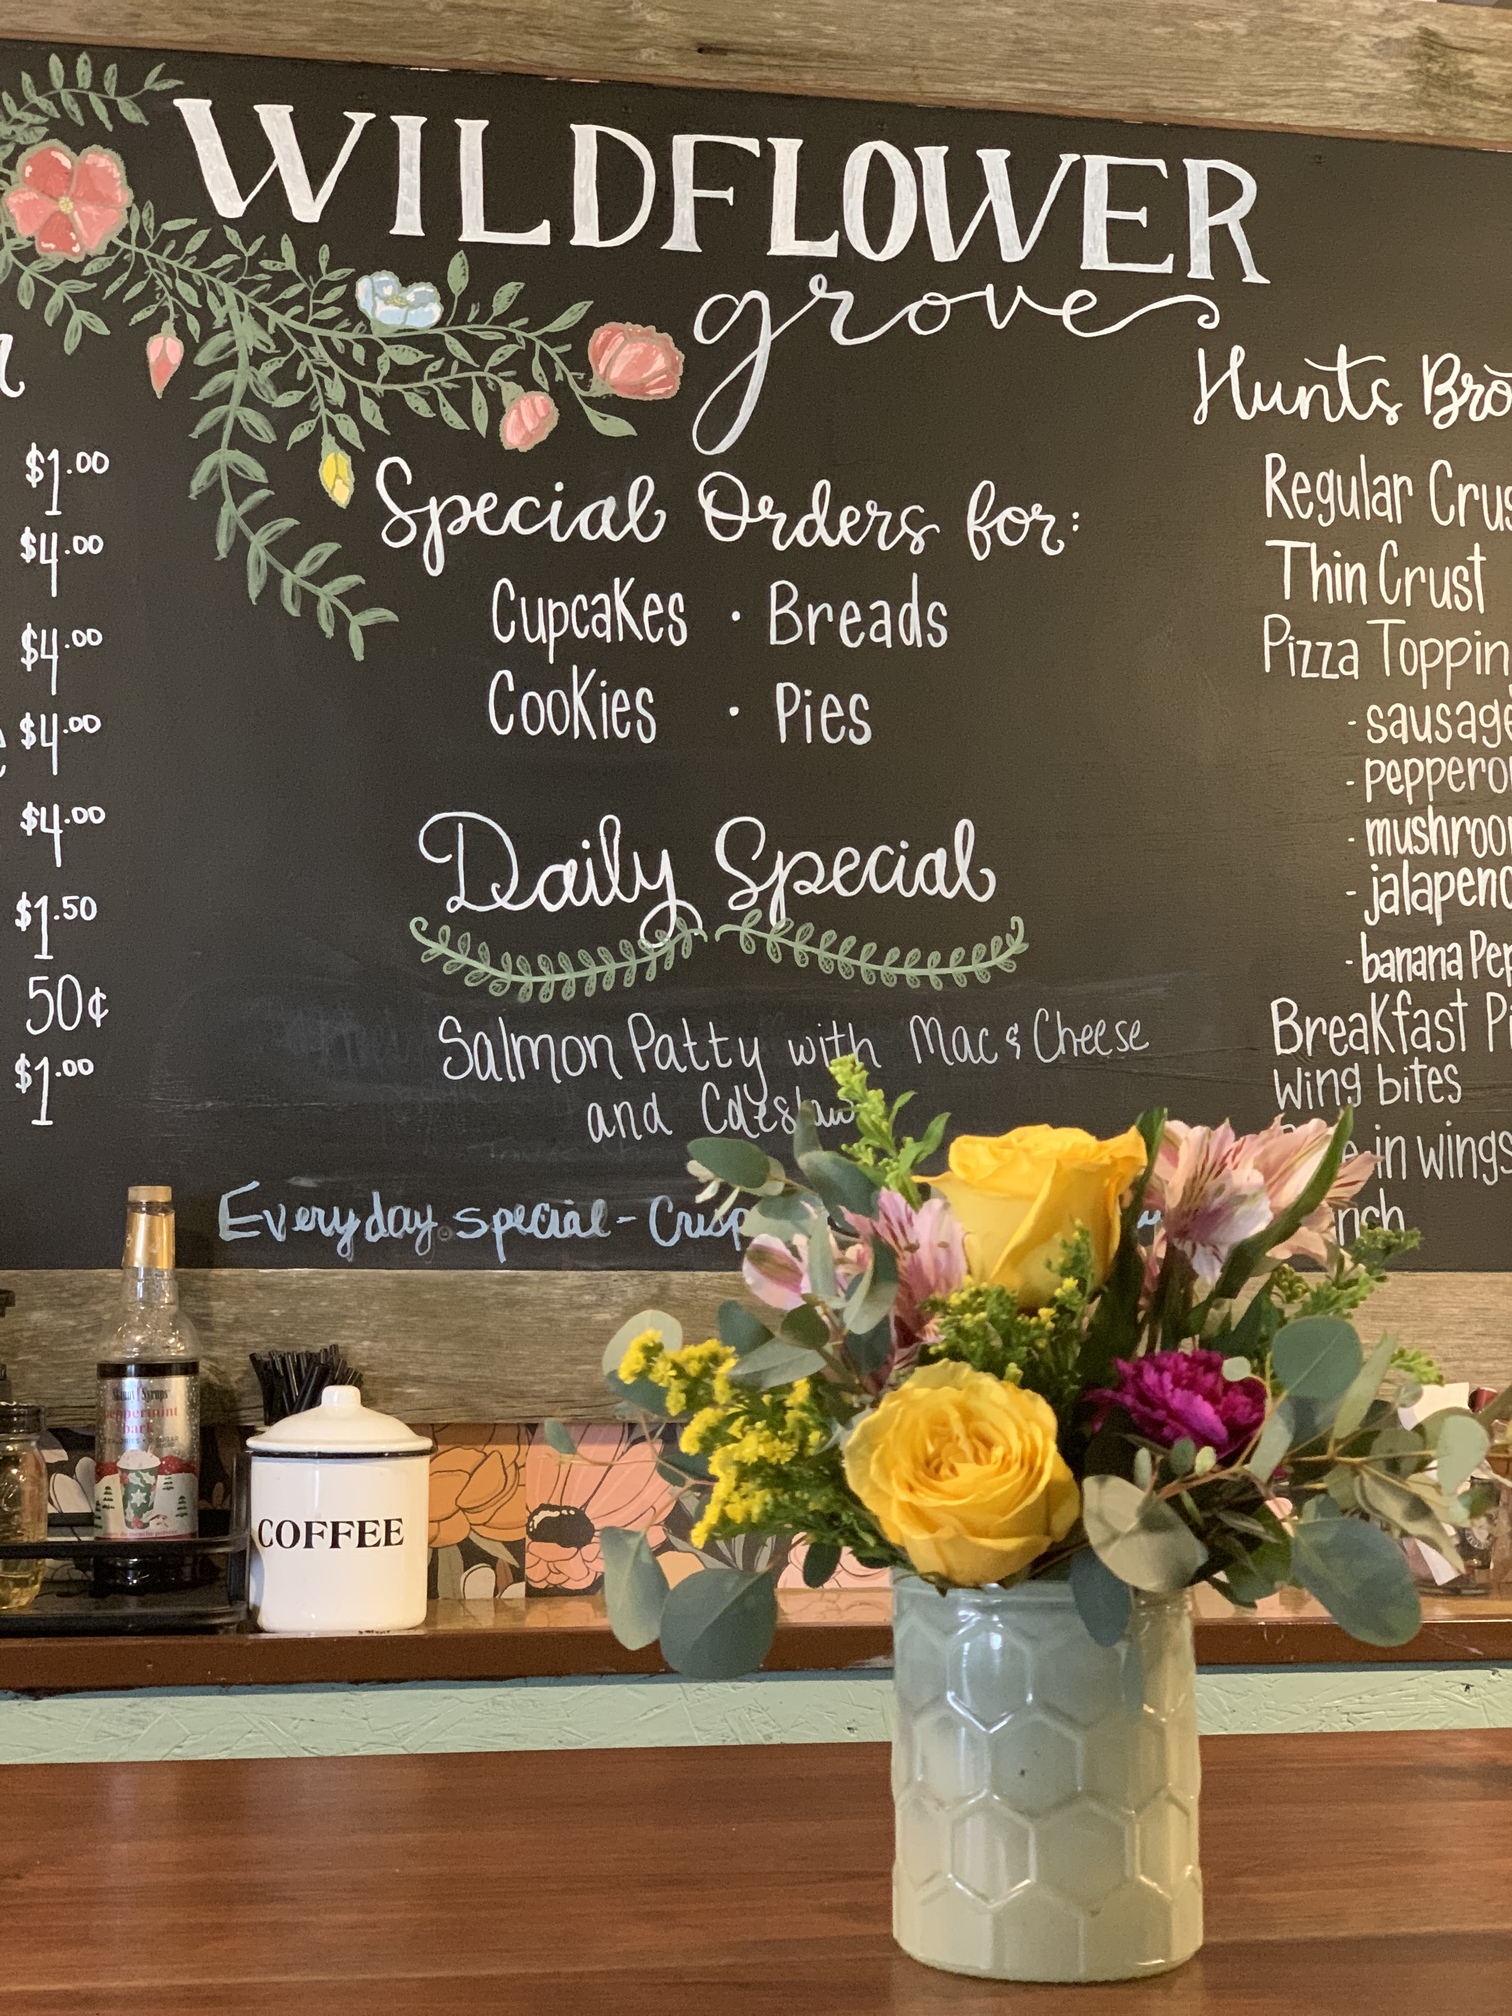 WILDFLOWER
grove
Special Orders for:
Cupcakes · Breads
Cookies · Pies
Daily Special
Salmon Patty with Mac & Cheese
and Coleslaw
Everyday special - Crisp
$1.00
$4.00
$4.00
$4.00
$4.00
$1.50
50¢
$1.00
Hunts Bro
Regular Crus
Thin Crust
Pizza Toppin
- sausage
- pepperon
- mushroom
- jalapeno
- banana Pep
Breakfast Pi
Wing bites
in wings
Skinny Syrups
peppermint
bark
COFFEE